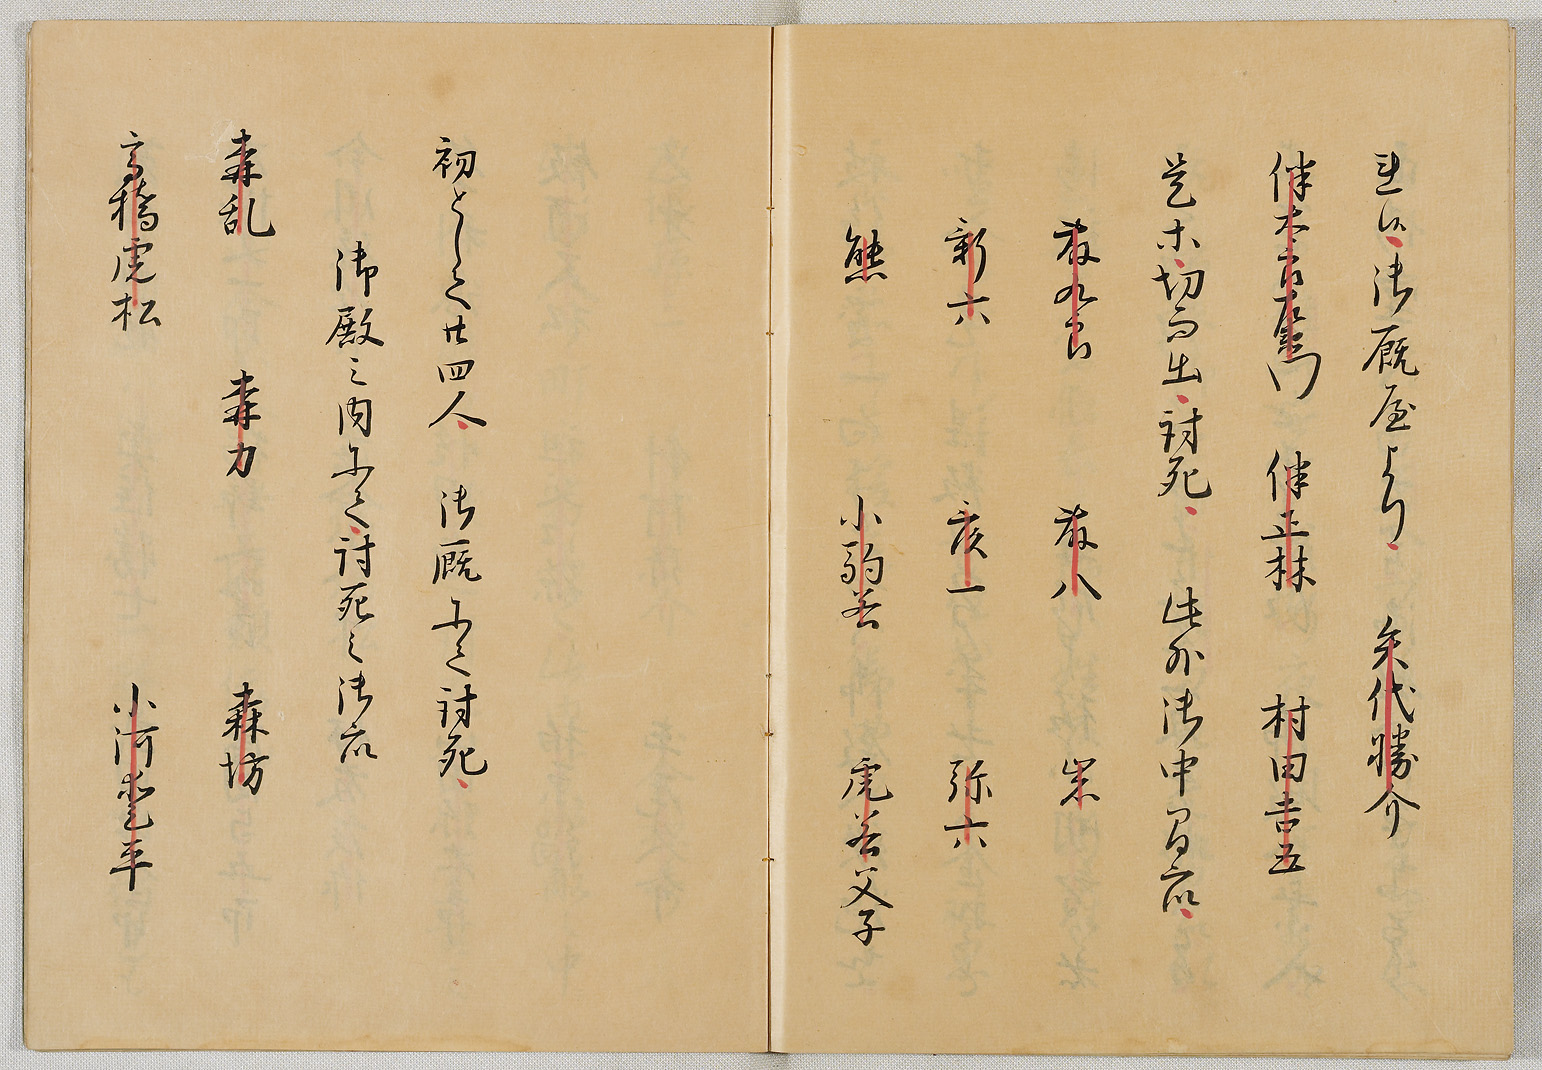 れ候、御厩屋より、矢代勝介
伴太郎左衛門　伴正林　村田吉五
是等、切而出、討死、此外御中間衆、
藤九郎　藤八　岩
新六　彦一　弥六
熊　小駒若　虎若父子
初として廿四人、御厩にて討死、
御殿之内にて、討死之御衆
森乱　森力　森坊
高橋虎松　小河愛平